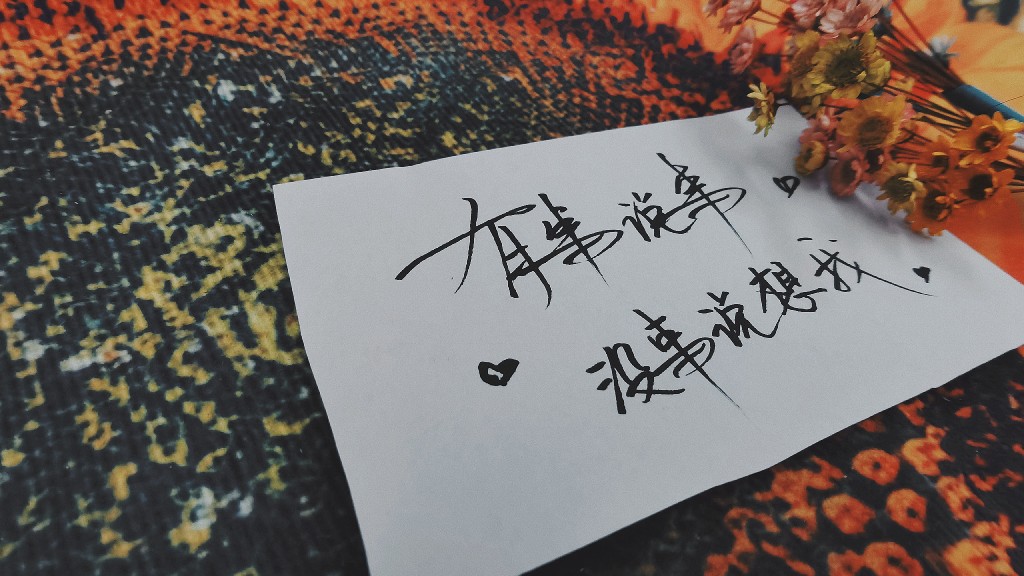 有事说事
没事说想我